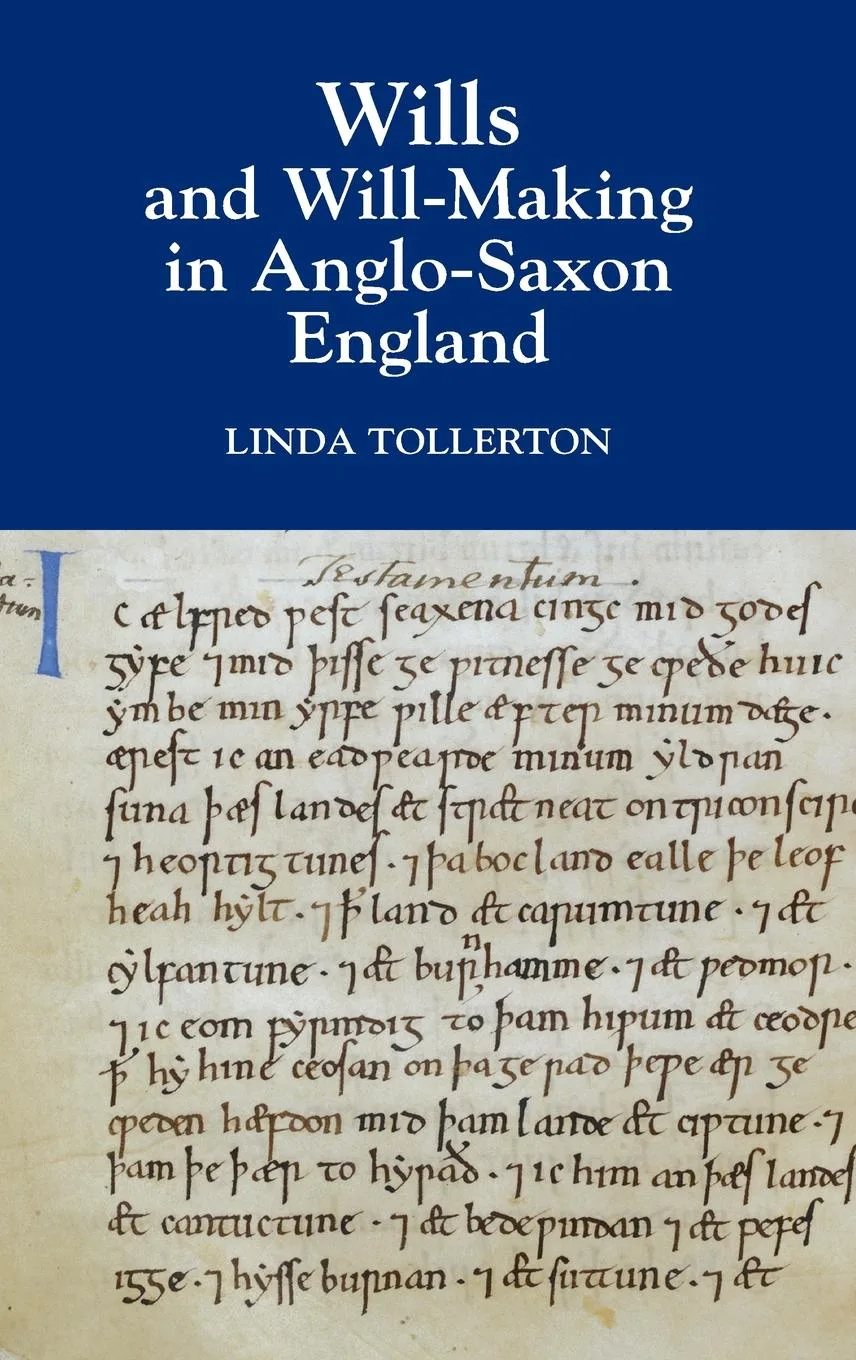 Wills
and Will-Making
in Anglo-Saxon
England
LINDA TOLLERTON
Testamentum .
Ic ælfred ƿest seaxena cingc mid godes
gẏfe ⁊ mid þisse ge ƿitnesse ge cƿeðe hu ic
ẏmbe min ẏrfe ƿille æfter minum dæge.
ærest ic an eadƿearde minum ẏldran
suna þæs landes æt strætneat on triconscire
⁊ heortigtunes . ⁊ þa bocland ealle þe leof
heah hẏlt . ⁊ ꝥ land æt carumtune . ⁊ æt
cẏlfantune . ⁊ æt burnhamme . ⁊ æt ƿedmor .
⁊ ic eom fẏrmdig to þam hiƿum æt ceodre
ꝥ hẏ hine ceosan on þa gerad þe ƿe ær ge
cƿeden hæfdon mid þam lande æt ciƿtune . ⁊
þam þe þær to hẏrað . ⁊ ic him an þæs landes
æt cantuctune . ⁊ æt bedeƿindan ⁊ æt ƿefes
igge . ⁊ hẏsseburnan . ⁊ æt suttune . ⁊ æt